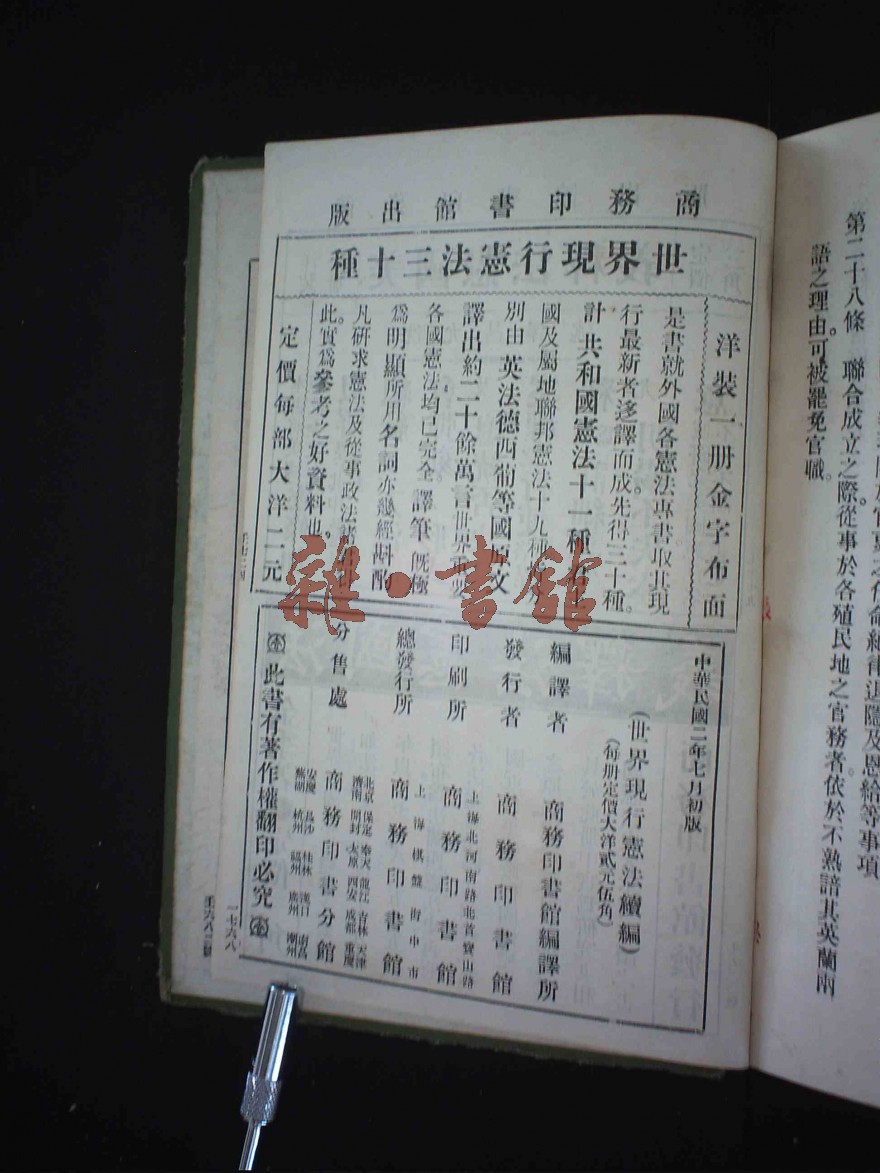 第二十八條　聯合成立之際從事於各殖民地之官務者依於不熟諳其英蘭兩
語之理由。可被罷免官職。
商務印書館出版
世界現行憲法三十種
洋裝一册金字布面
是書就外國各憲法專書取其現
行最新者迻譯而成先得三十種。
計共和國憲法十一種
國及屬地聯邦憲法十九種
別由英法德西葡等國原文
譯出約二十餘萬言世界重要
各國憲法均已完全。譯筆旣極
爲明顯所用名詞亦幾經斟酌
凡研求憲法及從事政法諸
此。實爲參考之好資料也。
定價每部大洋二元
中華民國二年七月初版
（世界現行憲法續編）
（每册定價大洋貳元伍角）
編譯者　商務印書館編譯所
發行者　商務印書館
上海北河南路北首寶山路
印刷所　商務印書館
上海棋盤街中市
總發行所　商務印書館
北京 保定 奉天 龍江 吉林 天津
濟南 開封 太原 西安 成都 重慶
分售處　商務印書分館
安慶 長沙 桂林 漢口 南昌
蕪湖 杭州 福州 廣州 潮州
此書有著作權翻印必究
一七六八
雜·書館